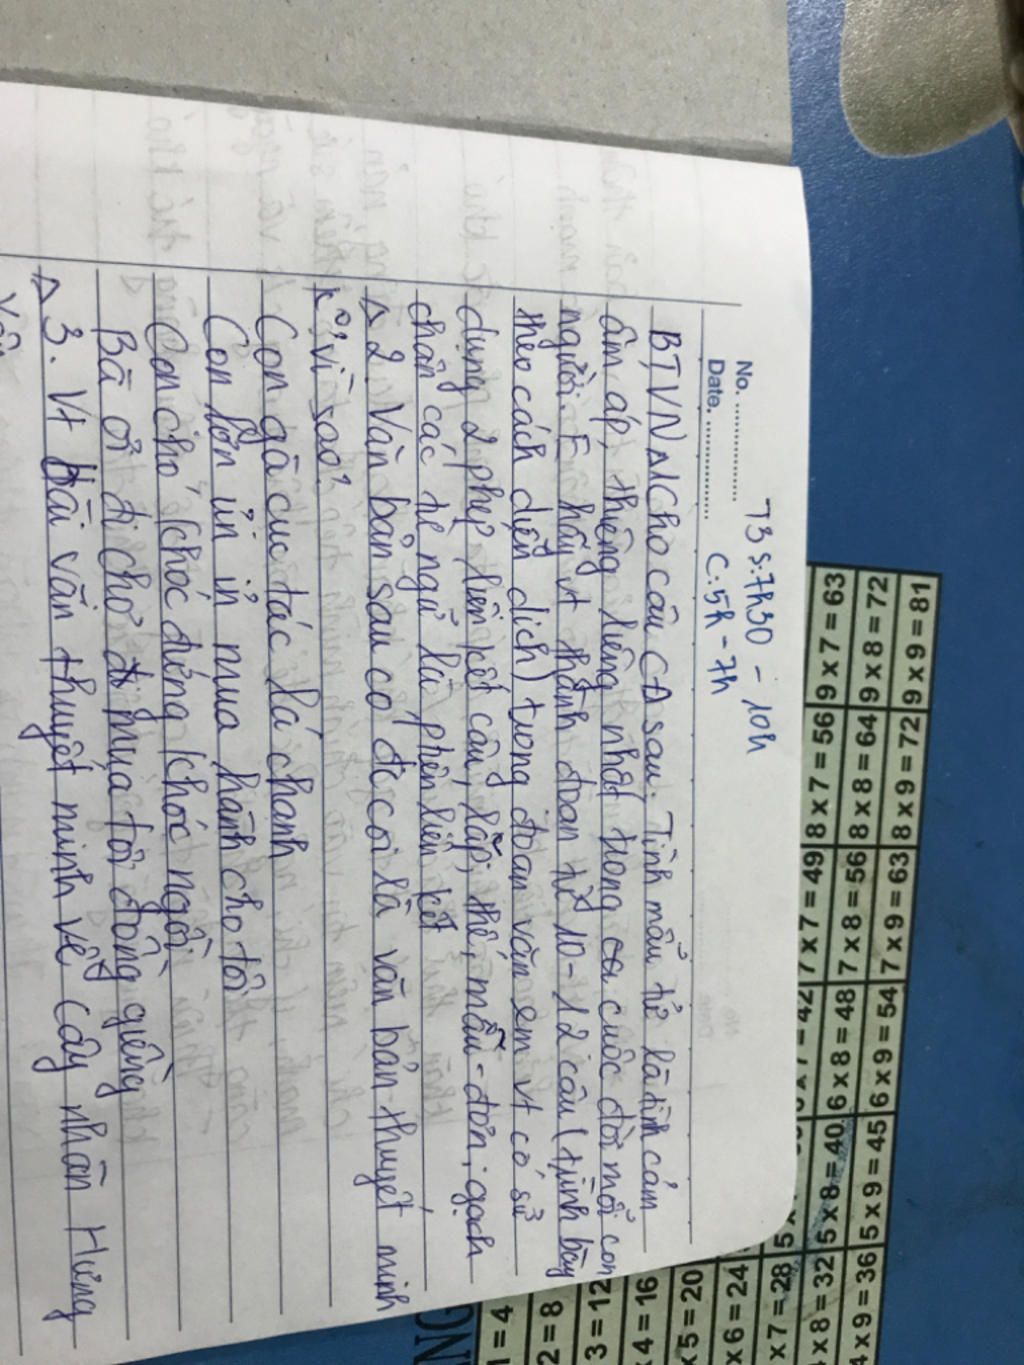 T3 S:7h30 - 10h
No. ....................
C:5h - 7h
Date. ....................
BTVN Δ1 Cho câu CĐ sau. Tình mẫu tử là tình cảm
ấm áp, thiêng liêng nhất trong ca cuộc đời mỗi con
người. Em hãy vt thành đoạn từ 10-12 câu (trình bày
theo cách diễn dịch) trong đoạn văn em vt có sử
dụng 2 phép liên kết câu, lặp, thế, mẫu - đơn; gạch
chân các từ ngữ là phép liên kết
Δ 2 Văn bản sau có đc coi là văn bản thuyết minh
k° vì sao?
Con gà cục tác lá chanh
Con lợn ủn ỉn mua hành cho tôi
Con chó khóc đứng khóc ngồi
Bà ơi đi chợ mua tôi đồng giềng
Δ 3. Vt bài văn thuyết minh về cây nhãn Hưng
9 x 7 = 63
9 x 8 = 72
9 x 9 = 81
8 x 7 = 56
8 x 8 = 64
8 x 9 = 72
7 x 7 = 49
7 x 8 = 56
7 x 9 = 63
6 x 8 = 48
6 x 9 = 54
5 x 8 = 40
5 x 9 = 45
1 = 4
2 = 8
3 = 12
x 4 = 16
x 5 = 20
x 6 = 24
x 7 = 28
x 8 = 32
4 x 9 = 36